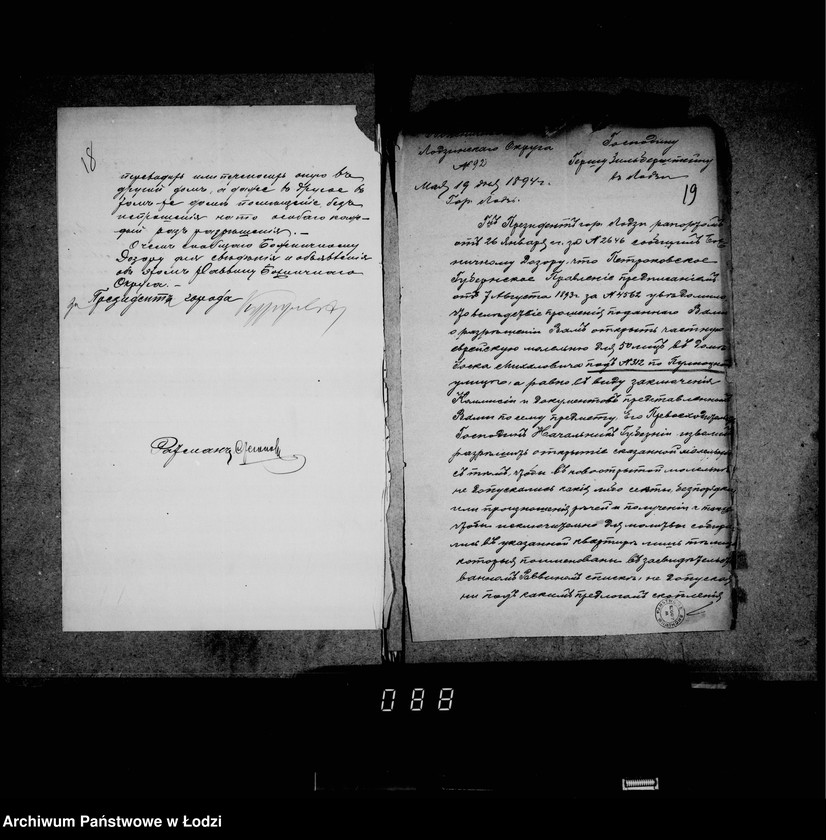 18
переводить или переносить оную въ
другой домъ, а даже въ другое въ
томъ же домѣ помѣщеніе безъ
испрошенія на то особаго каж-
дый разъ разрѣшенія. —
О чемъ сообщаю Божничному
Дозору для свѣдѣнія и объявленія
объ этомъ Раввину Божничнаго
Округа. —
за Президента города
Ратманъ
Лодзинскаго Округа
№ 92
Мая 19 дня 1894 г.
Гор. Лодзь.
Господину
Гершу Зильберштейну
въ Лодзи
19
Президентъ гор. Лодзи рапортомъ
отъ 26 Января с.г. за № 2646 сообщилъ Бож-
ничному Дозору, что Петроковское
Губернское Правленіе предписаніемъ
отъ 7 Августа 1893 г. за № 4562 увѣдомило
что вслѣдствіе прошенія поданнаго Вами
о разрѣшеніи Вамъ открыть частную
еврейскую молельню для 50 лицъ въ домѣ
подъ № 312 по
улицѣ, а равно въ виду заключенія
Коммисіи и документовъ представленныхъ
Вами по сему предмету, Его Превосходительство
Господинъ Начальникъ Губерніи изволилъ
разрѣшить открытіе сказанной молельни
съ тѣмъ, чтобы въ новооткрытой молельнѣ
не допускались какія либо секты, безпорядки
или произношенія рѣчей и поученій и также
чтобы исключительно для молитвы собира-
лись въ указанной квартирѣ лишь тѣ лица
которыя поименованы въ засвидѣтельство-
ванномъ Раввиномъ спискѣ, не допуская
ни подъ какимъ предлогомъ скопленія
088
Archiwum Państwowe w Łodzi